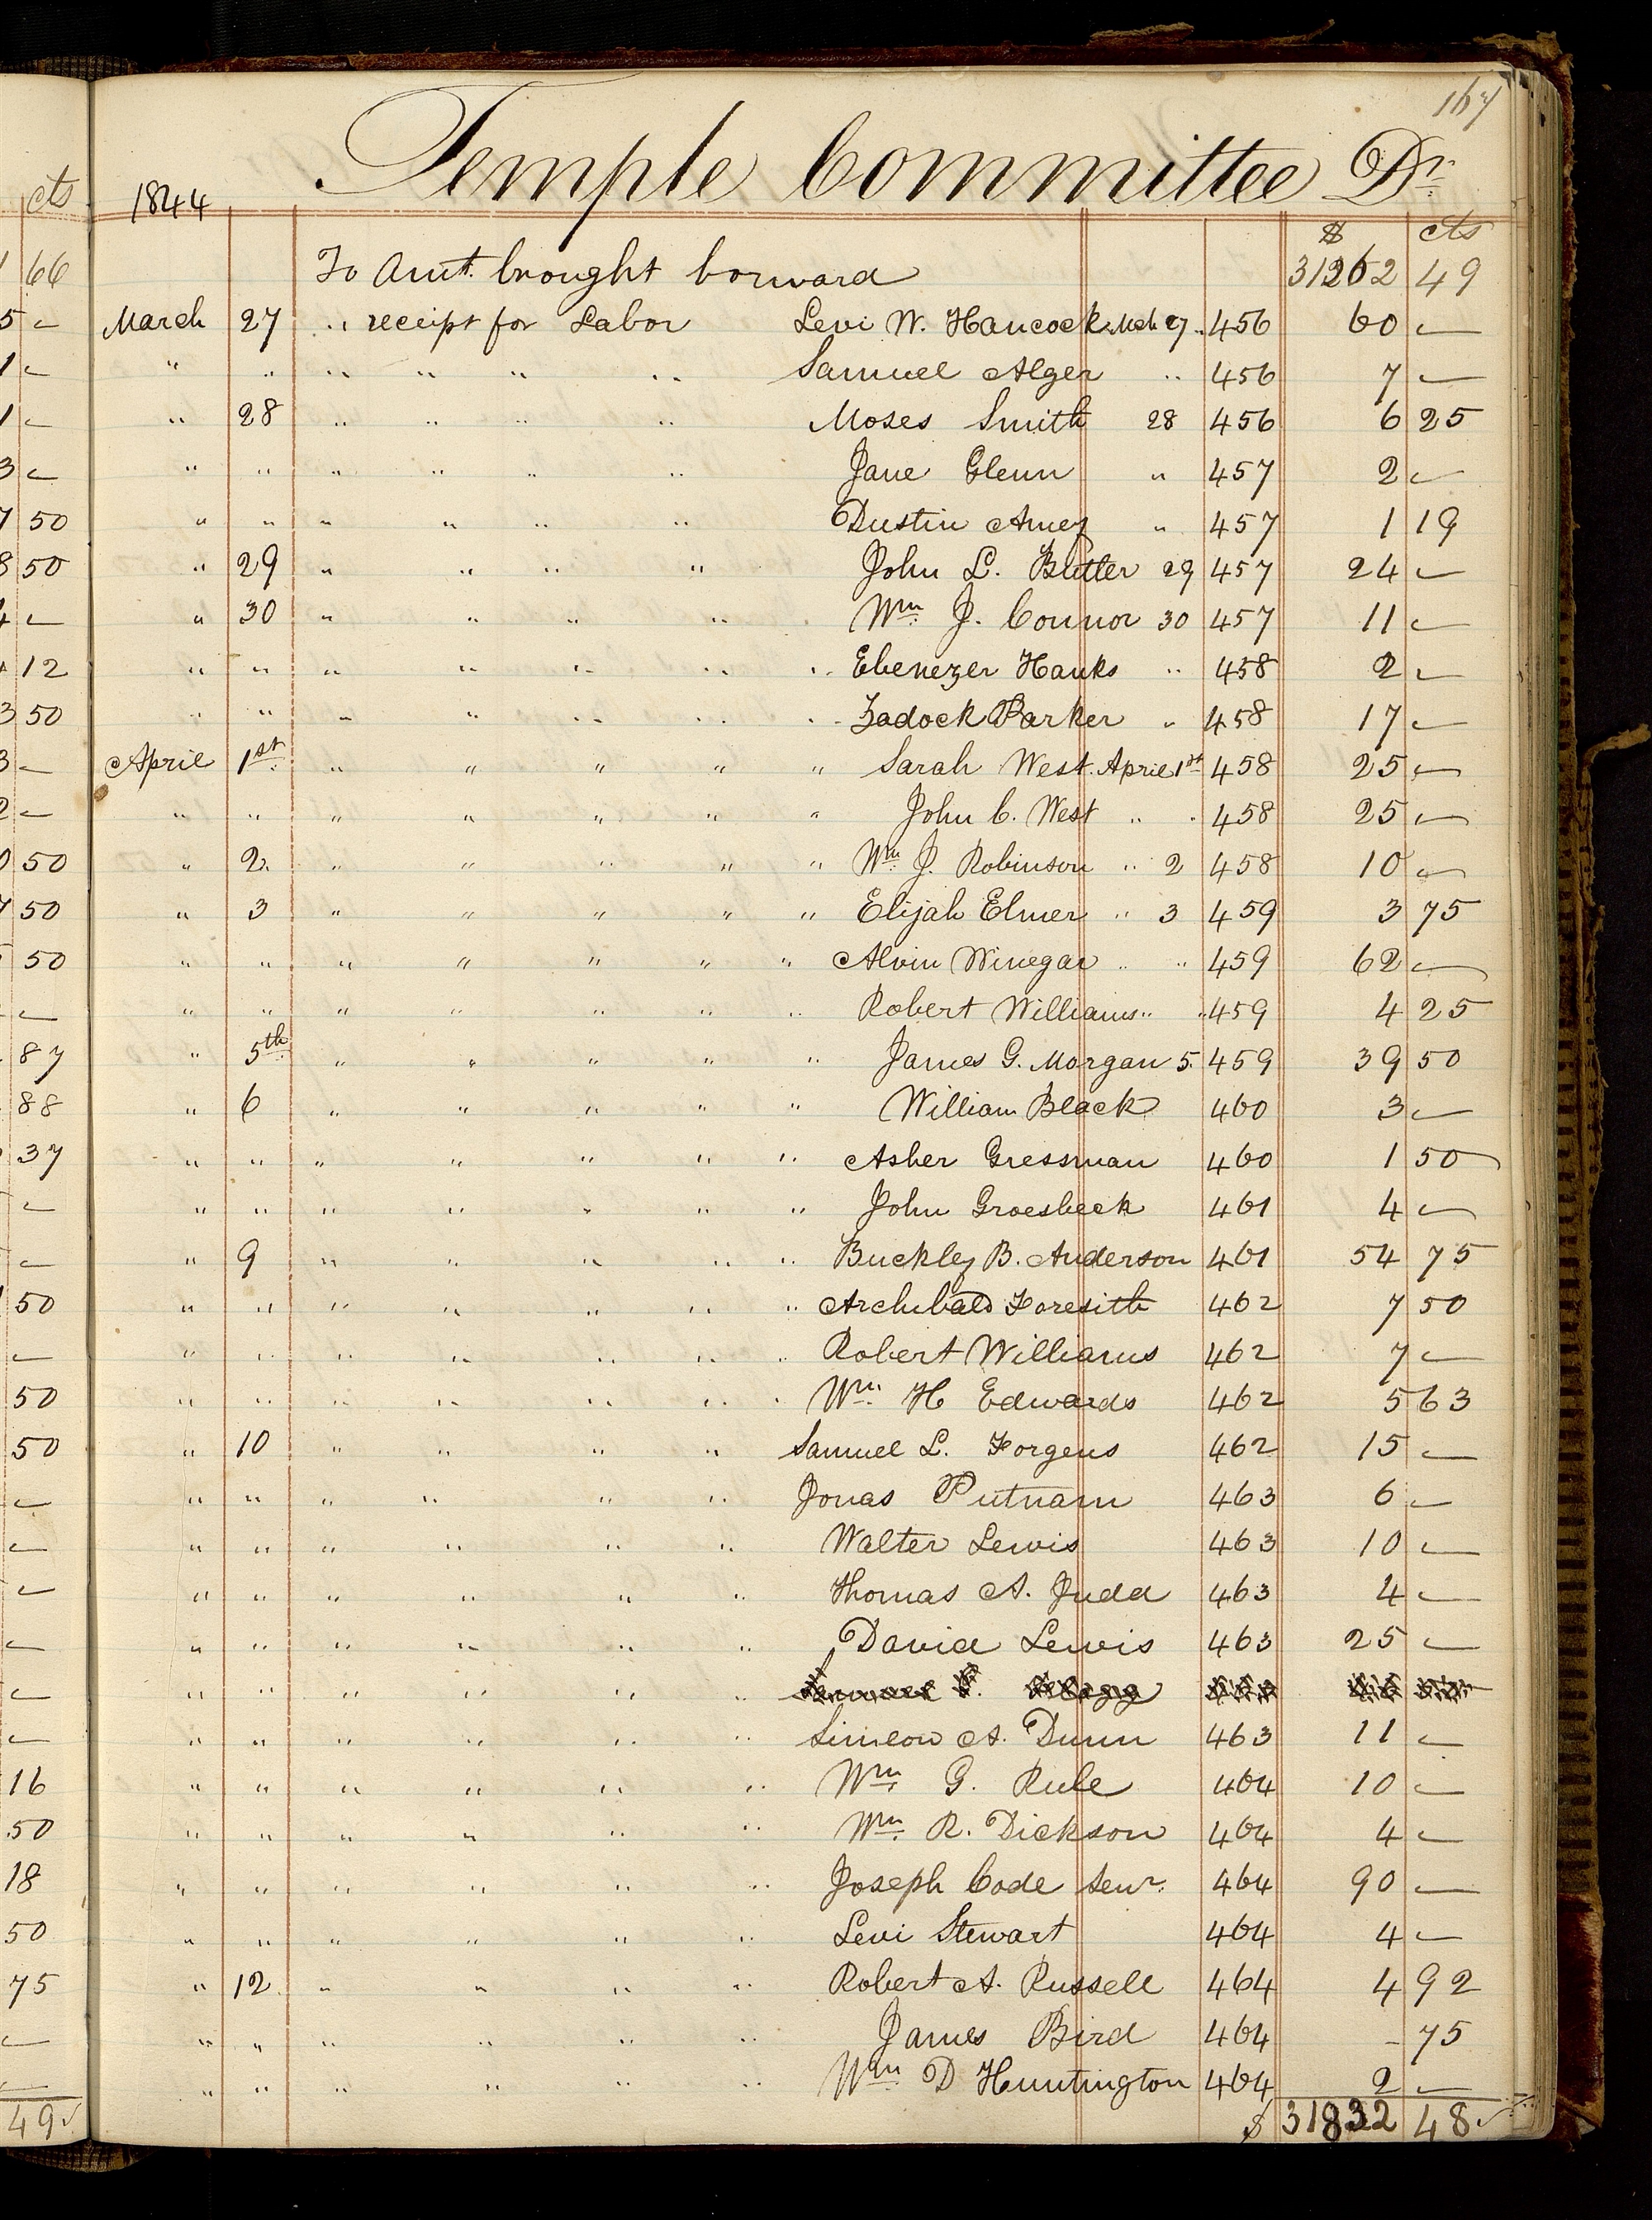 167
Temple Committee Dr.
cts 1844
$ cts
66 To Amt. brought forward 31262 49
5 – March 27 " receipt for Labor Levi W. Hancock Mch 27 " 456 60 –
1 – " " " " " " Samuel Alger " 456 7 –
1 – " 28 " " " " Moses Smith 28 456 6 25
3 – " " " " " " Jane Glenn " 457 2 –
7 50 " " " " " " Dustin Amey " 457 1 19
8 50 " 29 " " " " John L. Butler 29 457 24 –
4 – " 30 " " " " Wm. J. Connor 30 457 11 –
12 " " " " " " " Ebenezer Hanks " 458 2 –
3 50 " " " " " " " Zadock Parker " 458 17 –
3 – April 1st. " " " " " Sarah West. April 1st 458 25 –
2 – " " " " " " " John C. West " " 458 25 –
0 50 " 2. " " " " " Wm. J. Robinson " 2 458 10 –
7 50 " 3 " " " " " Elijah Elmer " 3 459 3 75
50 " " " " " " " Alvin Winegar " " 459 62 –
– " " " " " " " Robert Williams " " 459 4 25
87 " 5th. " " " " " James G. Morgan 5. 459 39 50
88 " 6 " " " " " William Black 460 3 –
37 " " " " " " " Asher Gressman 460 1 50
– " " " " " " " John Groesbeck 461 4 –
– " 9 " " " " " Buckley B. Anderson 461 54 75
50 " " " " " " " Archibald Foresith 462 7 50
– " " " " " " " Robert Williams 462 7 –
50 " " " " " " " Wm. H Edwards 462 5 63
50 " 10 " " " " Samuel L. Forgeus 462 15 –
– " " " " " " Jonas Putnam 463 6 –
– " " " " " " Walter Lewis 463 10 –
– " " " " " " Thomas A. Judd 463 4 –
– " " " " " " David Lewis 463 25 –
– " " " " " "
– " " " " " " Simeon A. Dunn 463 11 –
16 " " " " " " Wm. G. Rule 464 10 –
50 " " " " " " Wm. R. Dickson 464 4 –
18 " " " " " " Joseph Code Senr. 464 90 –
50 " " " " " " Levi Stewart 464 4 –
75 " 12. " " " " Robert A. Russell 464 4 92
– " " " " " " James Bird 464 – 75
– " " " " " " Wm. D Huntington 464 2 –
49 ✓ $ 31832 48 ✓